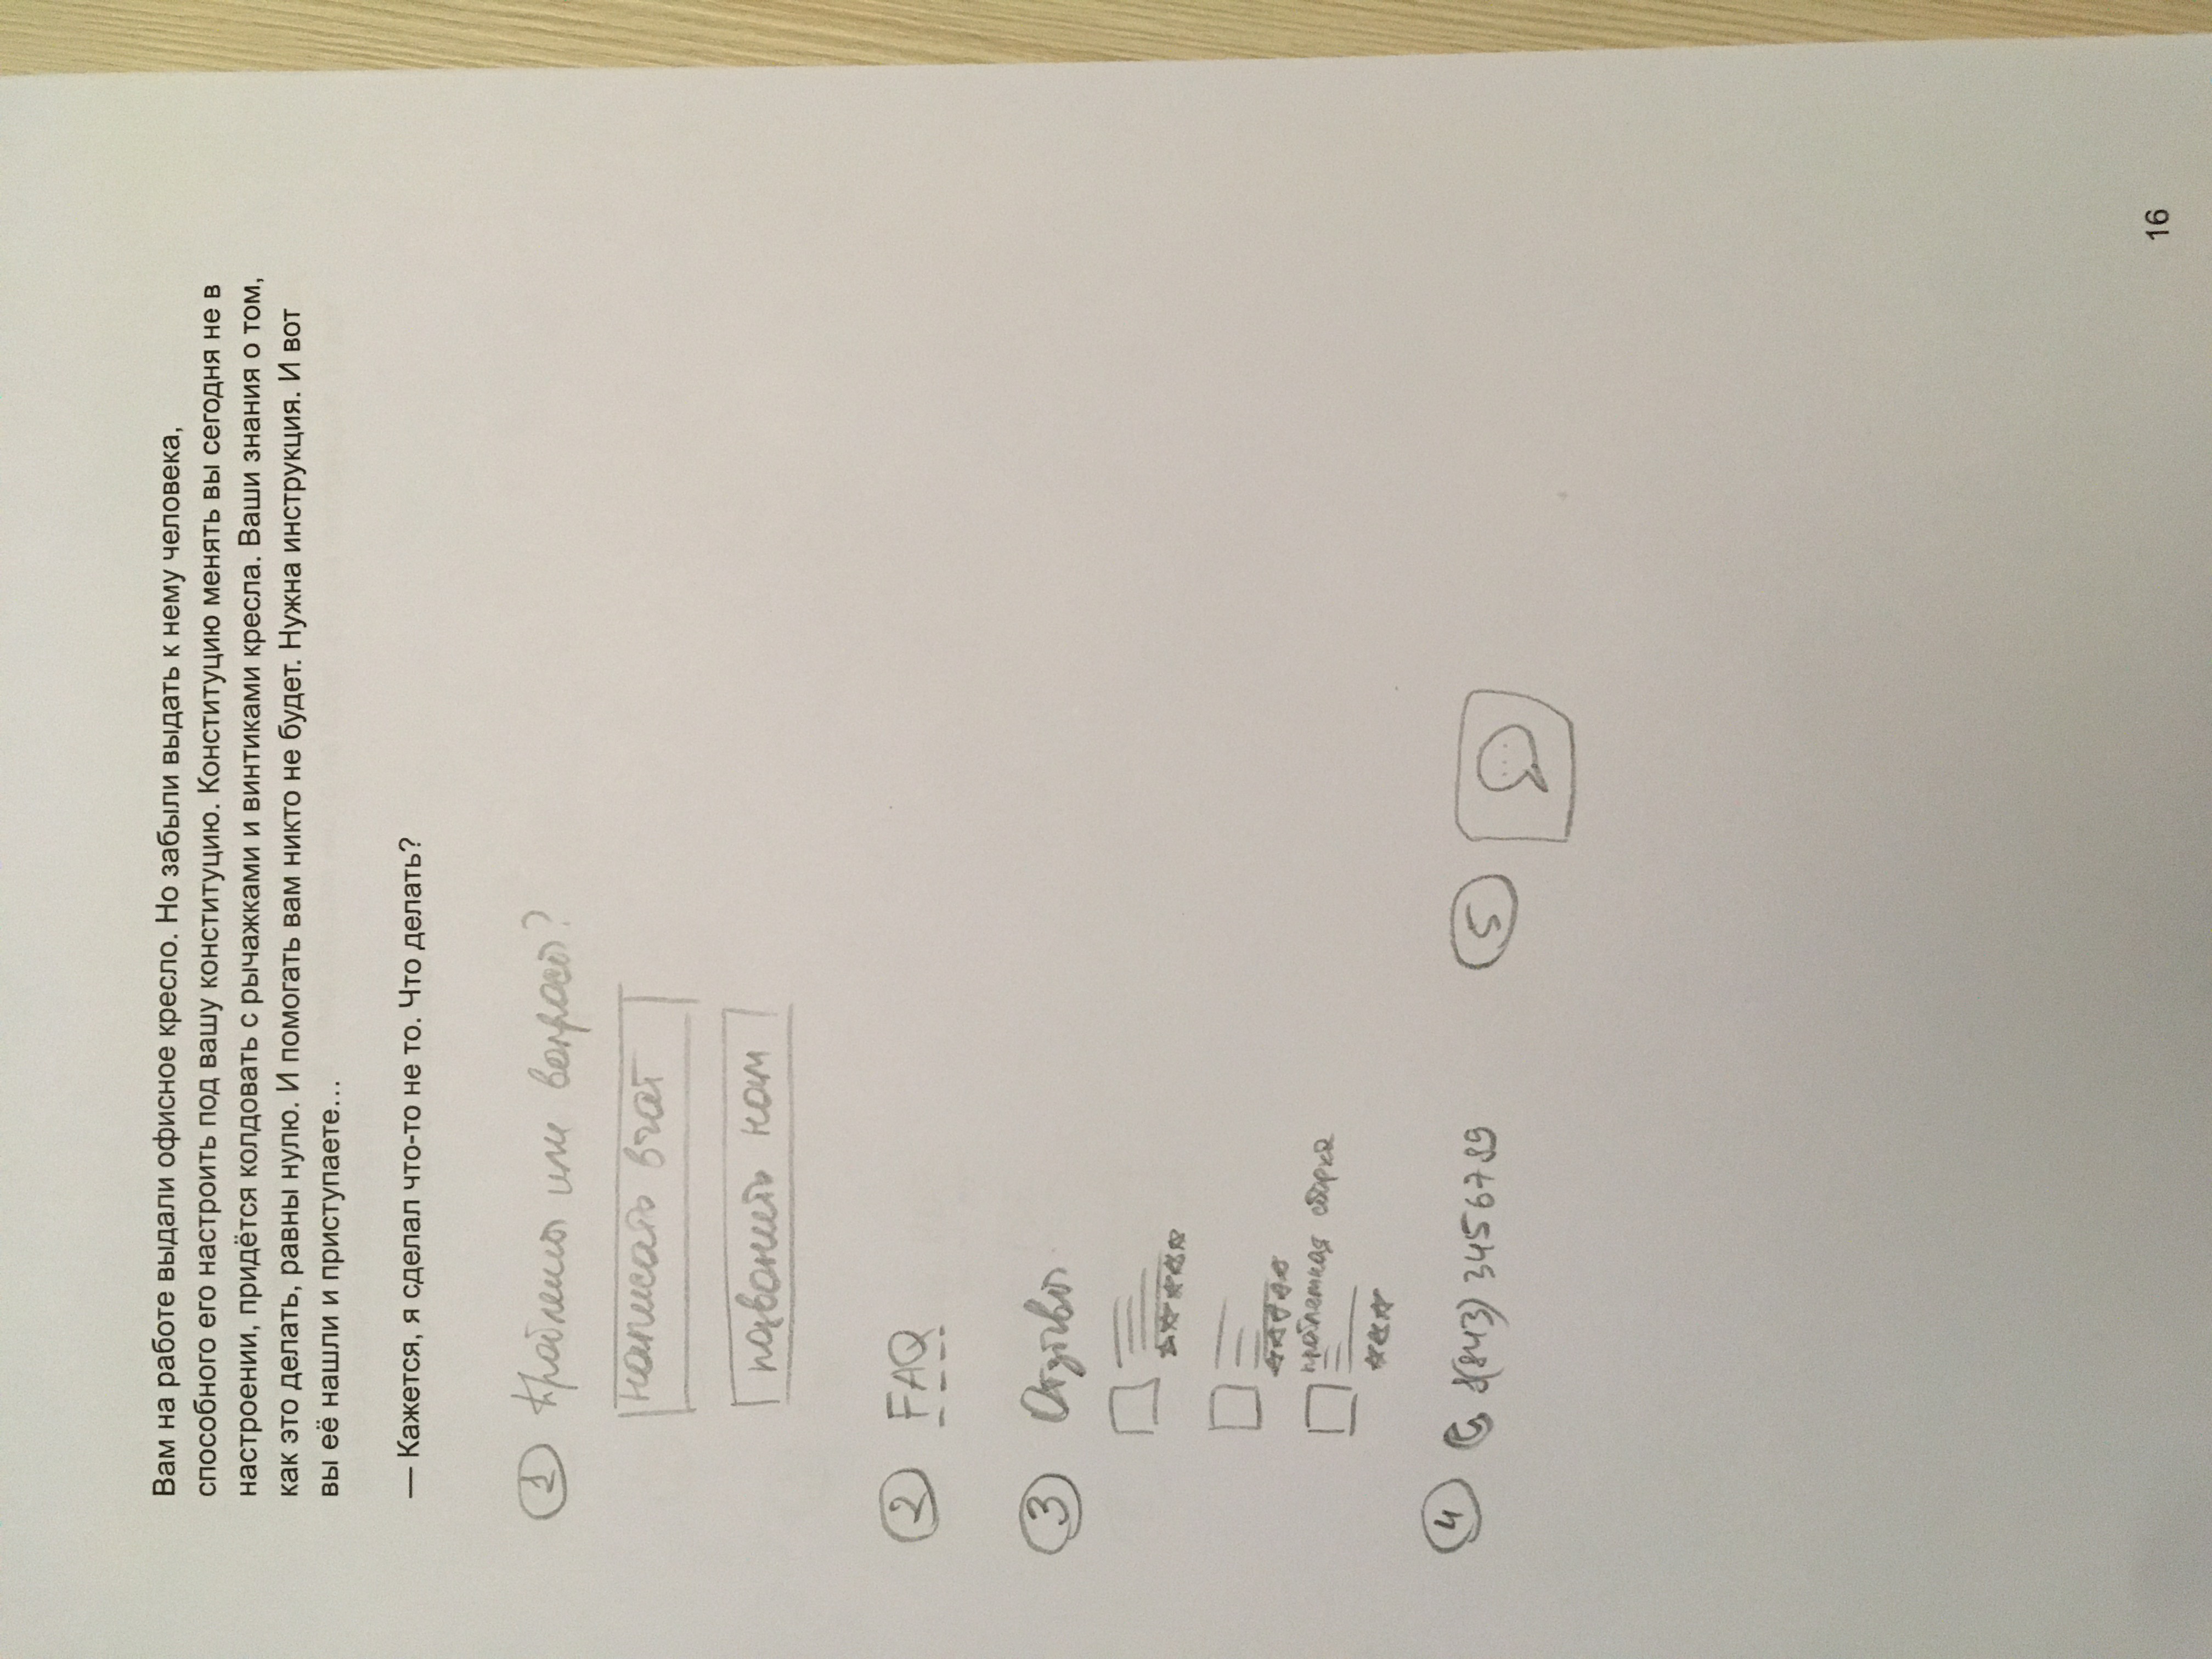 Вам на работе выдали офисное кресло. Но забыли выдать к нему человека,
способного его настроить под вашу конституцию. Конституцию менять вы сегодня не в
настроении, придётся колдовать с рычажками и винтиками кресла. Ваши знания о том,
как это делать, равны нулю. И помогать вам никто не будет. Нужна инструкция. И вот
вы её нашли и приступаете…
— Кажется, я сделал что-то не то. Что делать?
1 Проблемы или вопросы?
написать в чат
позвонить нам
2 FAQ
3 Отзывы
проблемная сборка
4 8(843) 3456789
5
16